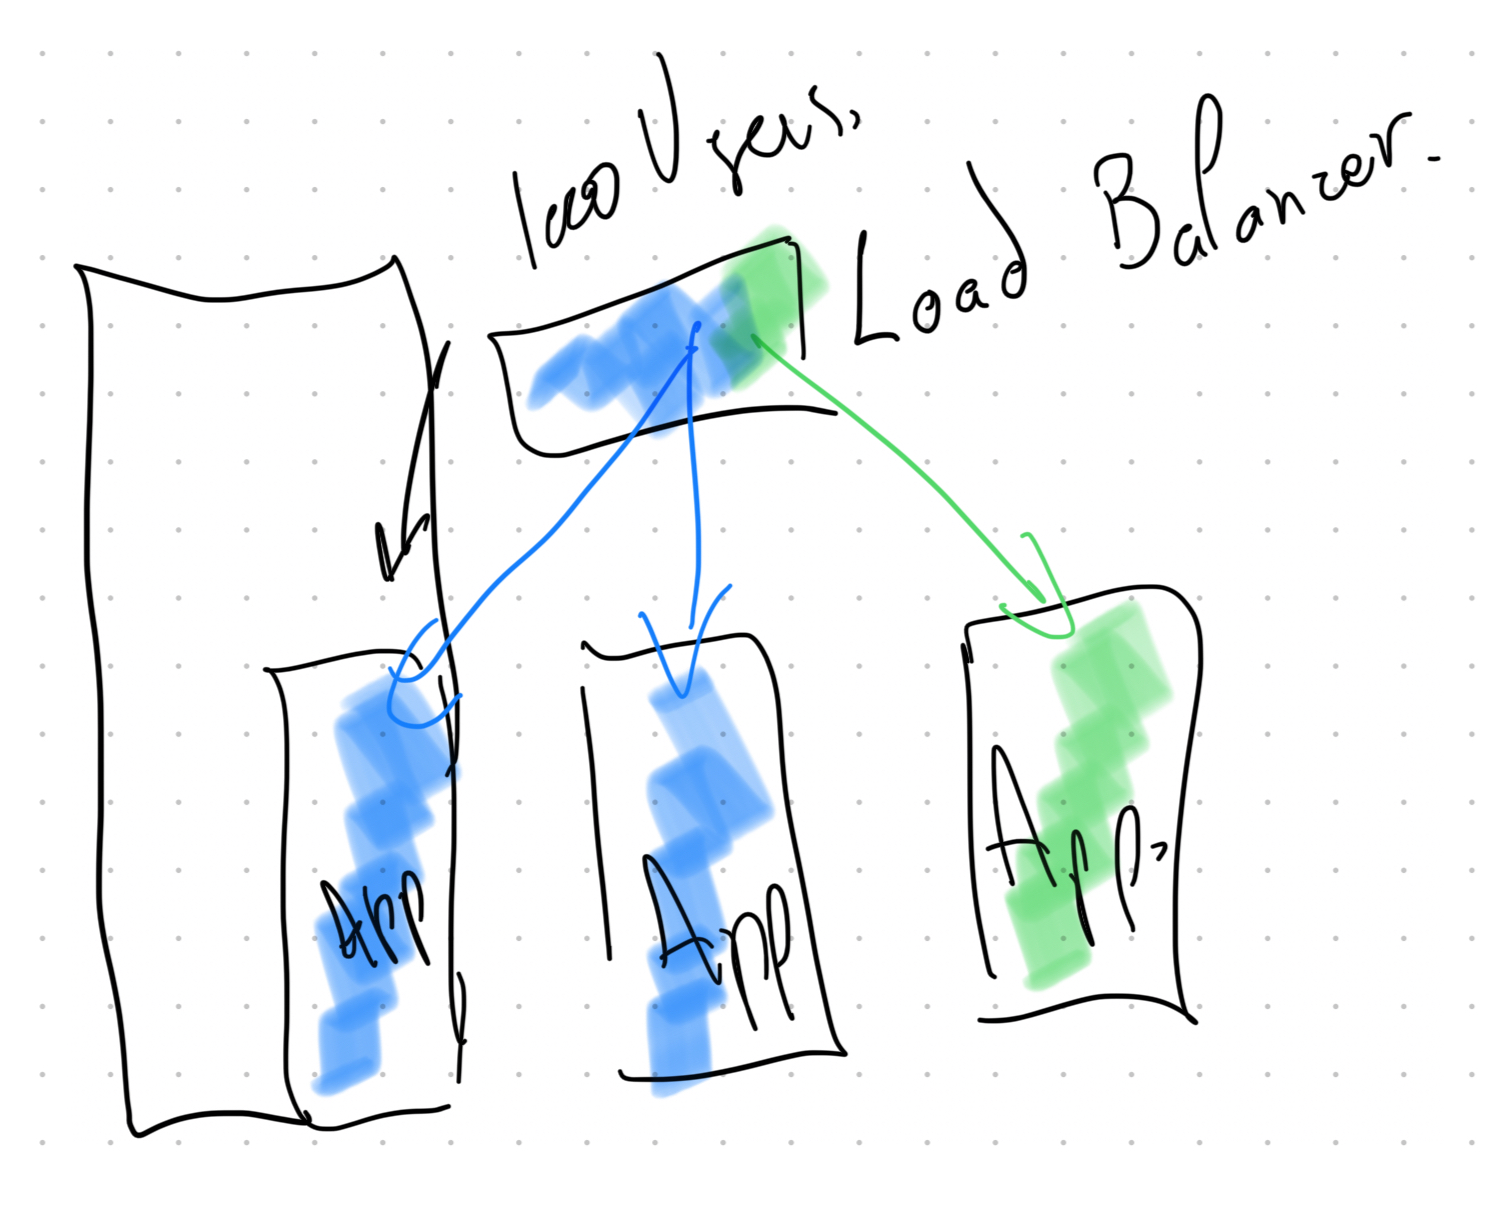 1000 Users,
Load Balancer.
App
App
App,